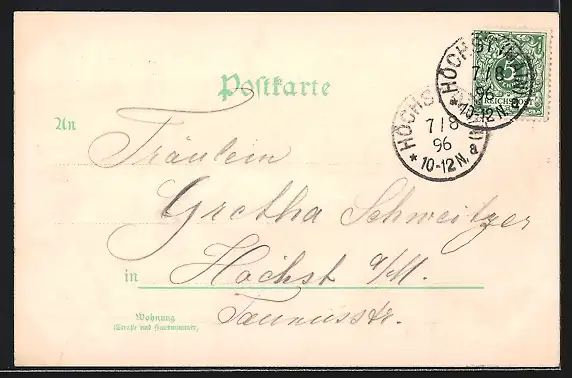 Postkarte
5
REICHSPOST
HÖCHST (MAIN)
7/8
96
* 10-12 N. a
HÖCHST (MAIN)
7/8
96
* 10-12 N. a
An
Fräulein
Gretha Schweitzer
in Höchst a/M.
Taunusstr.
Wohnung
(Straße und Hausnummer)